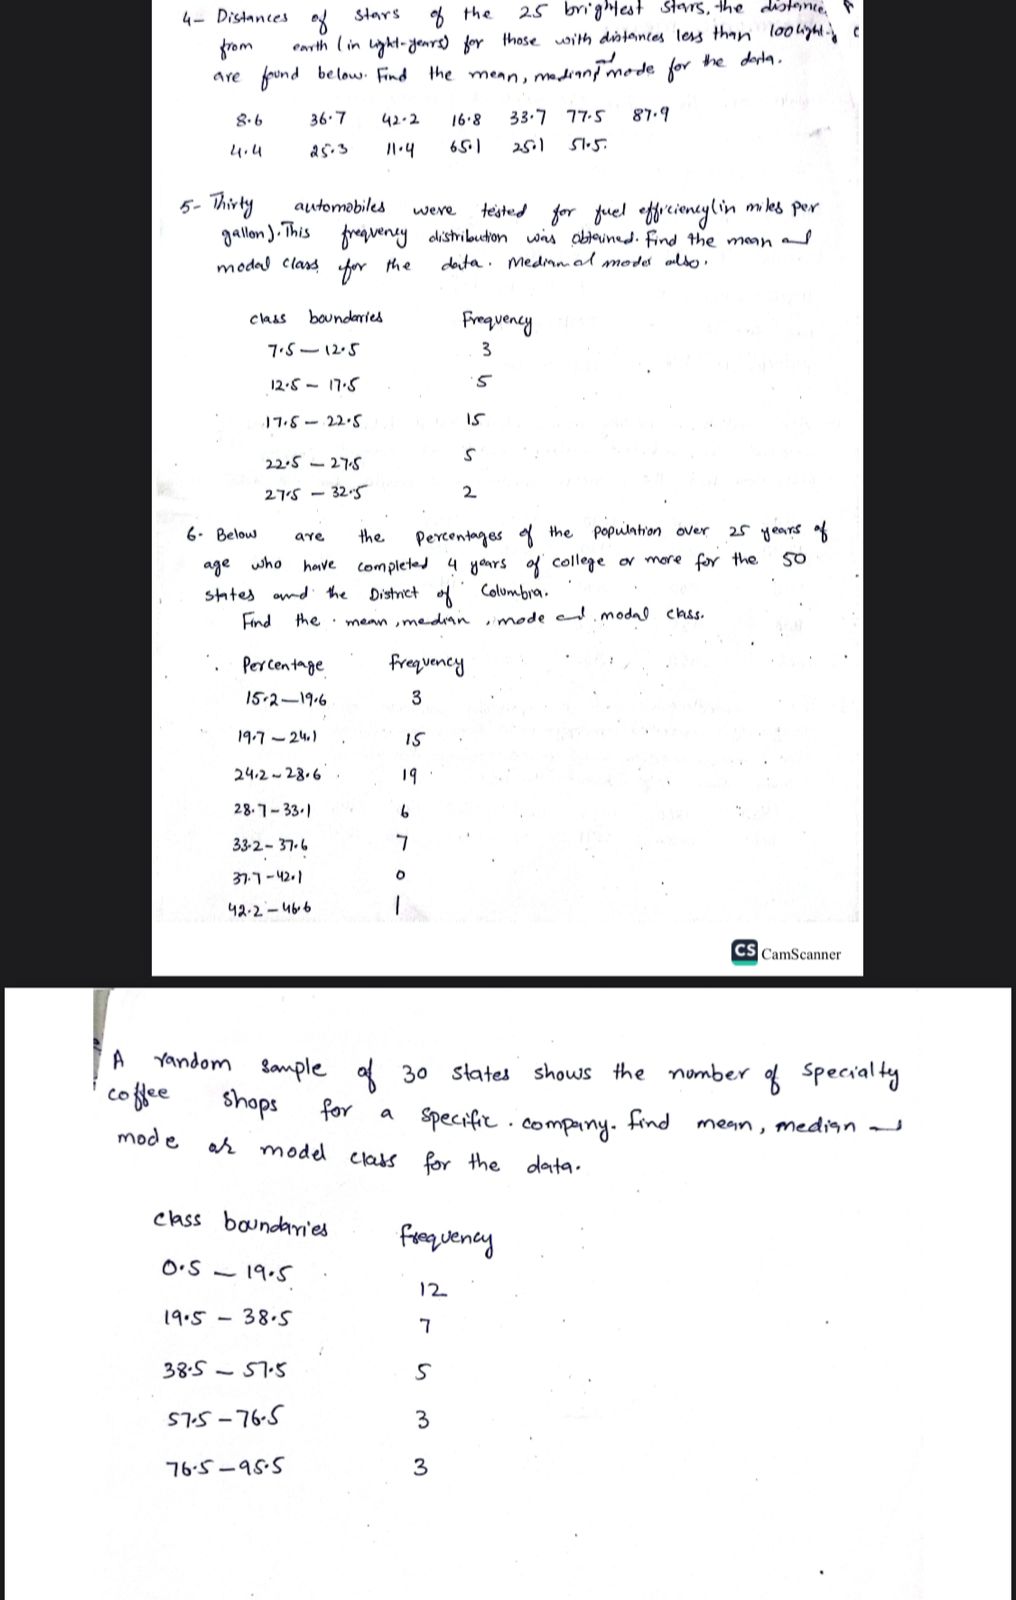 4- Distances of stars of the 25 brightest stars, the distance
from earth (in light-years) for those with distances less than 100 light-
are found below. Find the mean, median and mode for the data.
8.6 36.7 42.2 16.8 33.7 77.5 87.9
4.4 25.3 11.4 65.1 25.1 51.5.
5- Thirty automobiles were tested for fuel efficiency (in miles per
gallon). This frequency distribution was obtained. Find the mean and
modal class for the data. Median and mode also.
class boundaries Frequency
7.5 — 12.5 3
12.5 - 17.5 5
17.5 - 22.5 15
22.5 - 27.5 5
27.5 - 32.5 2
6- Below are the percentages of the population over 25 years of
age who have completed 4 years of college or more for the 50
states and the District of Columbia.
Find the mean, median, mode and modal class.
Percentage frequency
15.2-19.6 3
19.7-24.1 15
24.2-28.6 19
28.7-33.1 6
33.2-37.6 7
37.7-42.1 0
42.2-46.6 1
CS CamScanner
A random sample of 30 states shows the number of specialty
coffee shops for a specific company. find mean, median and
mode or model class for the data.
class boundaries frequency
0.5 - 19.5 12
19.5 - 38.5 7
38.5 - 57.5 5
57.5 - 76.5 3
76.5 - 95.5 3